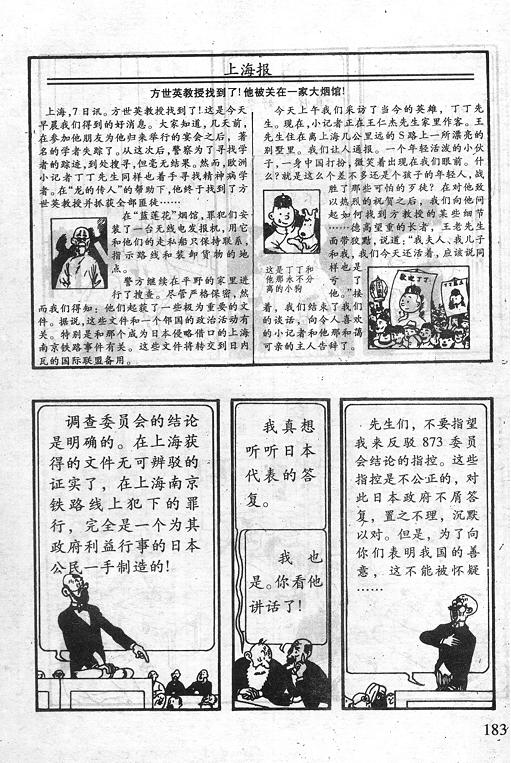 上海报
方世英教授找到了!他被关在一家大烟馆!
上海,7日讯。方世英教授找到了!这是今天
早晨我们得到的好消息。大家知道,几天前,
在参加他朋友为他归来举行的宴会之后,著
名的学者失踪了。从这次后,警察为了寻找学
者的踪迹,到处搜寻,但毫无结果。然而,欧洲
小记者丁丁先生同样也着手寻找精神病学
者。在“龙的传人”的帮助下,他终于找到了方
世英教授并抓获全部匪徒……
在“蓝莲花”烟馆,罪犯们安
装了一台无线电发报机,用它
和他们的走私船只保持联系,
指示路线和装卸货物的地
点。
警方继续在平野的家里进
行了搜查。尽管严格保密,然
而我们得知:他们起获了一些极为重要的文
件。据说,这些文件和一个邻国的政治活动有
关。特别是和那个成为日本侵略借口的上海
南京铁路事件有关。这些文件将转交到日内
瓦的国际联盟备用。
今天上午我们采访了当今的英雄,丁丁先
生。现在,小记者正在王仁杰先家里作客。王
先生住在离上海几公里远的S路上一所漂亮的
别墅里。我们让人通报。一个年轻活泼的小伙
子,一身中国打扮,微笑着出现在我们眼前。什
么?就是这么个差不多还是个孩子的年轻人,战
胜了那些可怕的歹徒?在对他致
以热烈的祝贺之后,我们向他问
起如何找到方教授的某些细节
……德高望重的长者,王老先生
面带狡黠,说道,“我夫人、我儿子
和我,我们今天还活着,应该说同
样也是
亏了
他。”接
着,我们结束了我们
的谈话,向令人喜欢
的小记者和他那和蔼
可亲的主人告辞了。
这是丁丁和
他那永不分
离的小狗
欢迎丁丁
调查委员会的结论
是明确的。在上海获
得的文件无可辨驳的
证实了,在上海南京
铁路线上犯下的罪
行,完全是一个为其
政府利益行事的日本
公民一手制造的!
我真想
听听日本
代表的答
复。
我也
是。你看他
讲话了!
先生们,不要指望
我来反驳873委员
会结论的指控。这些
指控是不公正的,对
此日本政府不屑答
复,置之不理,沉默
以对。但是,为了向
你们表明我国的善
意,这不能被怀疑
……
183